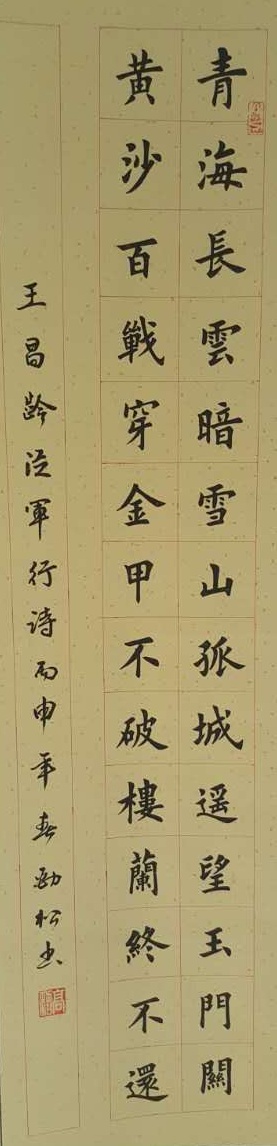 青海長雲暗雪山孤城遥望玉門關
黄沙百戰穿金甲不破樓蘭終不還
王昌齡從軍行詩丙申年春勁松书